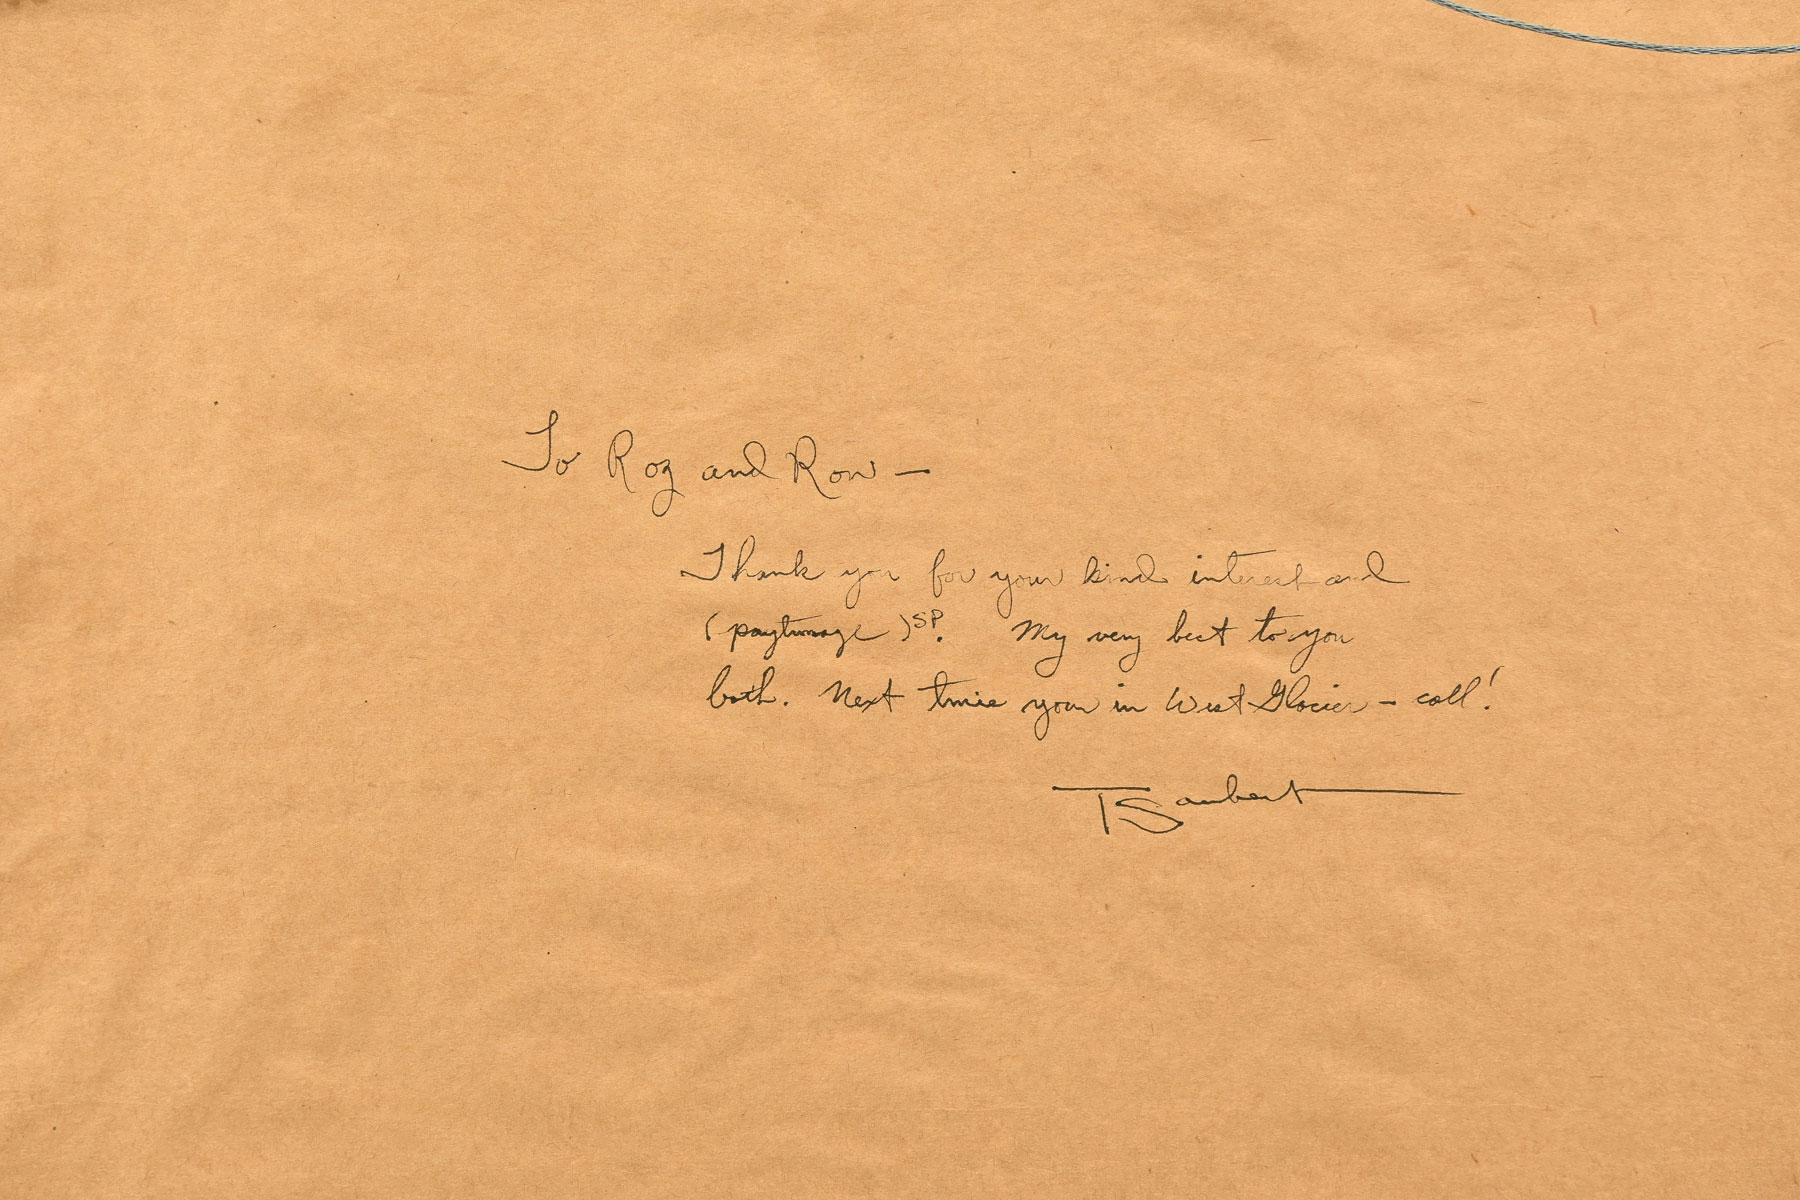 To Roz and Ron —
Thank you for your kind interest and
(paytronage)SP. My very best to you
both. Next time your in West Glacier - call!
T Saubert